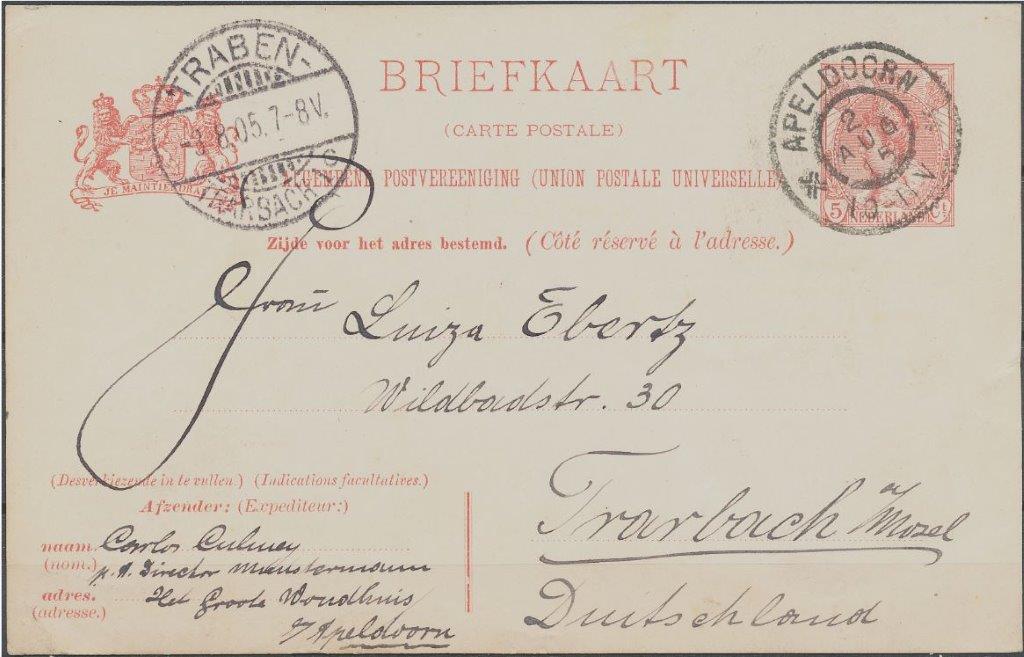 BRIEFKAART
(CARTE POSTALE)
ALGEMEENE POSTVEREENIGING (UNION POSTALE UNIVERSELLE)
Zijde voor het adres bestemd. (Côté réservé à l'adresse.)
JE MAINTIENDRAI
TRABEN-
-3.8.05.7-8V.
TRARBACH
c
APELDOORN
2
AUG
5
10-11V
5 NEDERLAND Ct
Frau Luiza Ebertz
Wildbadstr. 30
Trarbach a/Mosel
Duitschland
(Desverkiezende in te vullen.) (Indications facultatives.)
Afzender: (Expediteur:)
naam Carlos Culmey
(nom.) p. A. Director Munstermann
adres. Het Groote Woudhuis
(adresse.) b/Apeldoorn